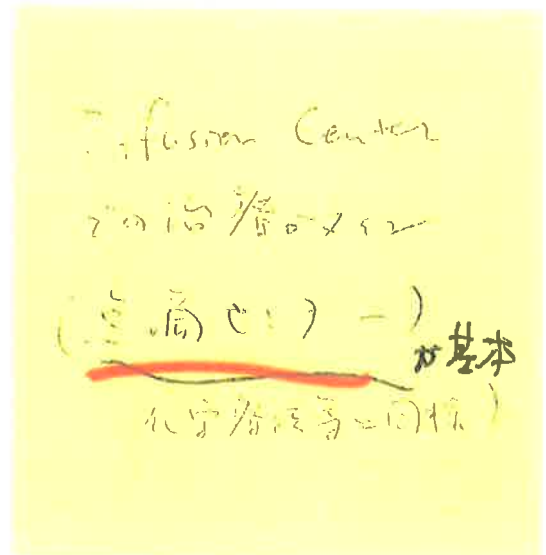 Infusion Center
での治療のメイン
(点滴センター)
が基本
化学療法等と同様)